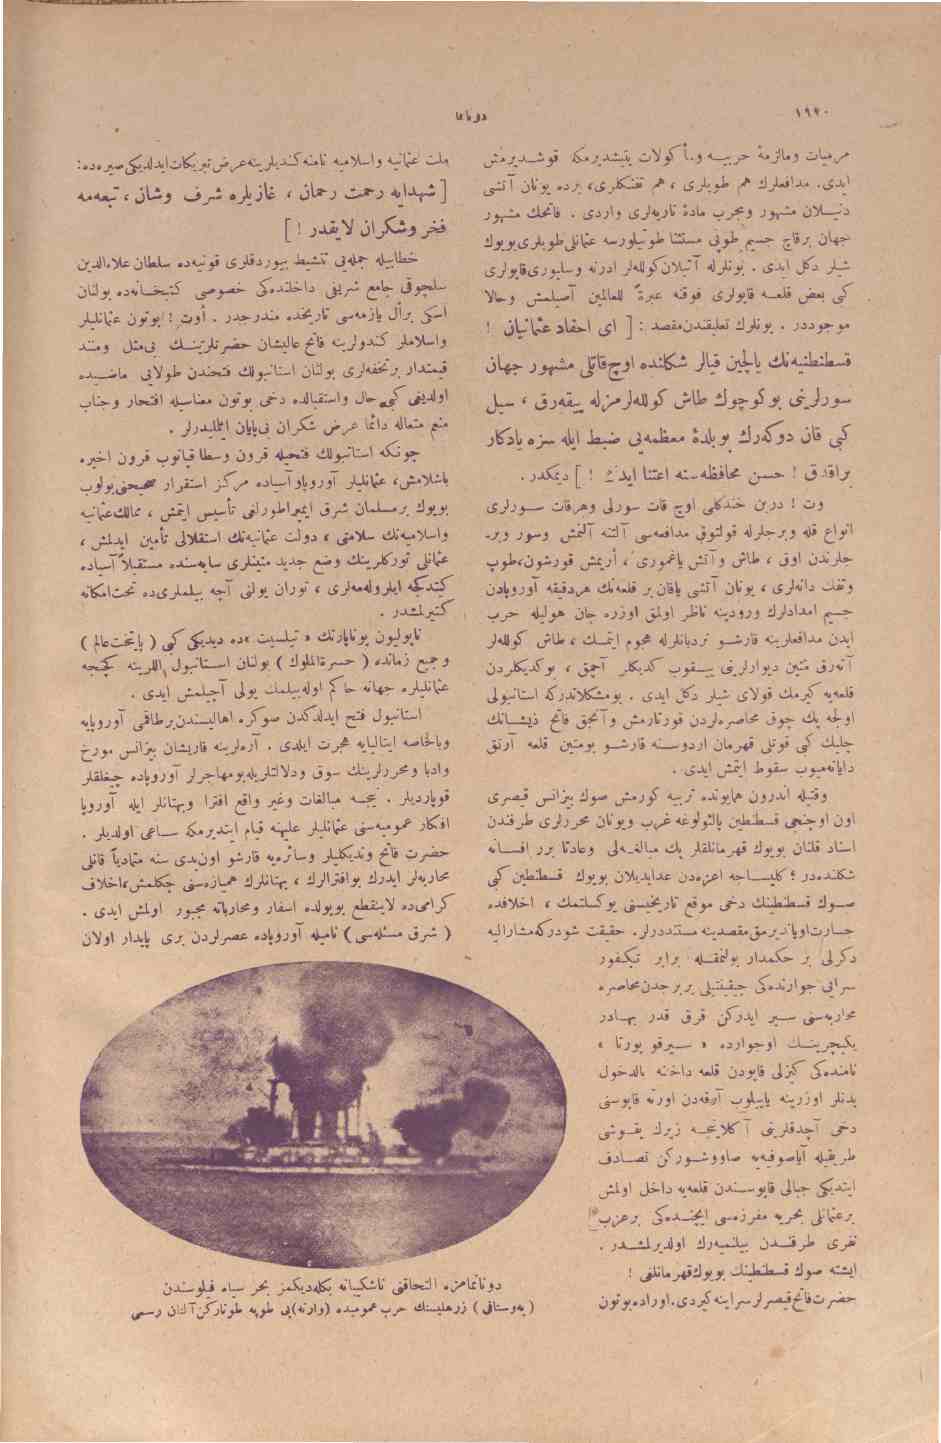 ١٩٢٠
دونانما
مرميات ومالزمهٔ حربيه ومأكولات يتيشديرمكه قوشديرمش
ايدى. مدافعلرك هم طوپلرى ، هم تفنكلرى، برده يونان آتشى
دنيلان مشهور ومجرب مادهٔ ناريه‌لرى واردى . فاتحك مشهور
جهان برقاچ جسيم طوپى مستثنا طوتيلورسه عثمانلى طوپلرى بويوك
شيلر دكل ايدى . بونلرله آتيلان كولله‌لر ادرنه وسليورى‌قاپولرى
كبى بعض قلعه قاپولرى فوقنه عبرةً للعالمين آصيلمش وحالا
موجوددر . بونلرك تعليقندن‌مقصد : [ اى احفاد عثمانيان !
قسطنطنيه‌نك يالچين قيالر شكلنده اوچ‌قاتلى مشهور جهان
سورلرينى بو كوچوك طاش كولله‌لرمزله ييقه‌رق ، سيل
كبى قان دوكه‌رك بو بلدهٔ معظمه‌يى ضبط ايله سزه يادكار
براقدق ! حسن محافظه‌سنه اعتنا ايدك ! ] ديمكدر .
وت ! درين خندكلى اوچ قات سورلى وهرقات سورلرى
انواع قله وبرجلرله قولتوقى مدافعه‌سى آلتنه آلنمش وسور وبر-
جلرندن اوق ، طاش وآتش ياغمورى ، أريمش قورشون،طوپ
وتفنك دانه‌لرى ، يونان آتشى ياقان بر قلعه‌نك هردقيقه آوروپادن
جسيم امدادلرك ورودينه ناظر اولمق اوزره جان هوليله حرب
ايدن مدافعلرينه قارشو نردبانلرله هجوم ايتمك ، طاش كولله‌لر
آته‌رق متين ديوارلرينى ييقوب كديكلر آچمق ، بوكديكلردن
قلعه‌يه كيرمك قولاى شيلر دكل ايدى . بومشكلاندركه استانبولى
اولجه پك چوق محاصره‌لردن قورتارمش وآنجق فاتح ذيشانك
چليك كبى قوتلى قهرمان اردوسنه قارشو بومتين قلعه آرتق
دايانه‌ميوب سقوط ايتمش ايدى .
وقتيله اندرون همايونده تربيه كورمش صوك بيزانس قيصرى
اون اوچنجى قسطنطين پالئولوغه غرب ويونان محررلرى طرفندن
اسناد قلنان بويوك قهرمانلقلر پك مبالغه‌لى وعادتا برر افسانه
شكلنده‌در ؛ كليساجه اعزه‌دن عدايديلان بويوك قسطنطين كبى
صوك قسطنطينك دخى موقع تاريخيسنى يوكسلتمك ، اخلافده
جسارت‌اوياندرمق‌مقصدينه مستنددرلر. حقيقت شودركه‌مشاراليه
دكرلى بر حكمدار بولنمقله برابر تيكفور
سرايى جوارنده‌كى چيقينتيلى بربرجدن‌محاصره
محاربه‌سنى سير ايدركن قرق قدر بهادر
يكيچرينك اوجوارده « سيرقو پورتا »
نامنده‌كى كيزلى قاپودن قلعه داخلنه بالدخول
بدنلر اوزرينه ياييلوب آرقه‌دن اورته قاپوسنى
دخى آچدقلرينى آكلاينجه زيرك يقوشى
طريقيله آياصوفيه‌يه صاووشوركن تصادف
ايتديكى جبالى قاپوسندن قلعه‌يه داخل اولمش
برعثمانلى بحريه مفرزه‌سى ايچنده‌كى برعزب
نفرى طرفندن بيلنميه‌رك اولديرلمشدر .
ايشته صوك قسطنطينك بويوك‌قهرمانلغى !
حضرت‌فاتح قيصرلر سراينه كيردى. اوراده‌بوتون
ملت عثمانيه واسلاميه نامنه‌كنديلرينه‌عرض تبريكات‌ايدلديكى صيره‌ده:
[ شهدايه رحمت رحمان ، غازيلره شرف وشان ، تبعه‌مه
فخر وشكران لايقدر ! ]
خطابيله جمله‌يى تنشيط بيوردقلرى قونيه‌ده سلطان علاءالدين
سلچوقى جامع شريفى داخلنده‌كى خصوصى كتبخانه‌ده بولنان
اسكى برأل يازمه‌سى تاريخده مندرجدر . أوت ! بوتون عثمانليلر
واسلاملر كندولرينه فاتح عاليشان حضرتلرينك بى‌مثل ومنند
قيمتدار برتحفه‌لرى بولنان استانبولك فتحندن طولايى ماضيده
اولديغى كبى حال واستقبالده دخى بوتون معناسيله افتخار وجناب
منعم متعاله دائما عرض شكران بى‌پايان ايتمليدرلر .
چونكه استانبولك فتحيله قرون وسطا قپانوب قرون اخيره
باشلامش، عثمانليلر آوروپاوآسياده مركز استقرار صحيحنى‌بولوب
بويوك برمسلمان شرق ايمپراطورلغى تأسيس ايتمش ، ممالك‌عثمانيه
واسلاميه‌نك سلامتى ، دولت عثمانيه‌نك استقلالى تأمين ايدلمش ،
عثمانلى توركلرينك وضع جديد متينلرى سايه‌سنده مستقبلاً آسياده
كيتدكجه ايلروله‌مه‌لرى ، توران يولنى آچه بيلملرى‌ده تحت‌امكانه
كتيرلمشدر .
ناپوليون بوناپارتك « تيلسيت »ده ديديكى كبى ( پايتخت‌عالم )
وجميع زمانده ( حسرةالملوك ) بولنان استانبول اللرينه كچنجه
عثمانليلره جهانه حاكم اوله‌بيلمك يولى آچيلمش ايدى .
استانبول فتح ايدلدكدن صوكره اهاليسندن‌برطاقمى آوروپايه
وبالخاصه ايتاليايه هجرت ايلدى . آره‌لرينه قاريشان بيزانس مورخ
وادبا ومحررلرينك سوق ودلالتلريله‌بومهاجرلر آوروپاده چيغلقلر
قوپارديلر . نيجه مبالغات وغير واقع افترا وبهتانلر ايله آوروپا
افكار عموميه‌سنى عثمانليلر عليهنه قيام ايتديرمكه ساعى اولديلر .
حضرت فاتح ونديكليلر وسائره‌يه قارشو اون‌يدى سنه متمادياً قانلى
محاربه‌لر ايدرك بوافترالرك ، بهتانلرك جازه‌سنى چكلمش،اخلاف
كرامى‌ده لاينقطع بويولده اسفار ومحارباته مجبور اولمش ايدى .
( شرق مسئله‌سى ) ناميله آوروپاده عصرلردن برى پايدار اولان
دونانمامزه التحاقنى ناشكيبانه بكله‌ديكمز بحر سياه فيلوسندن
( يه‌وستافى ) زرهليسنك حرب عموميده (وارنه)يى طوپه طوتاركن آلنان رسمى